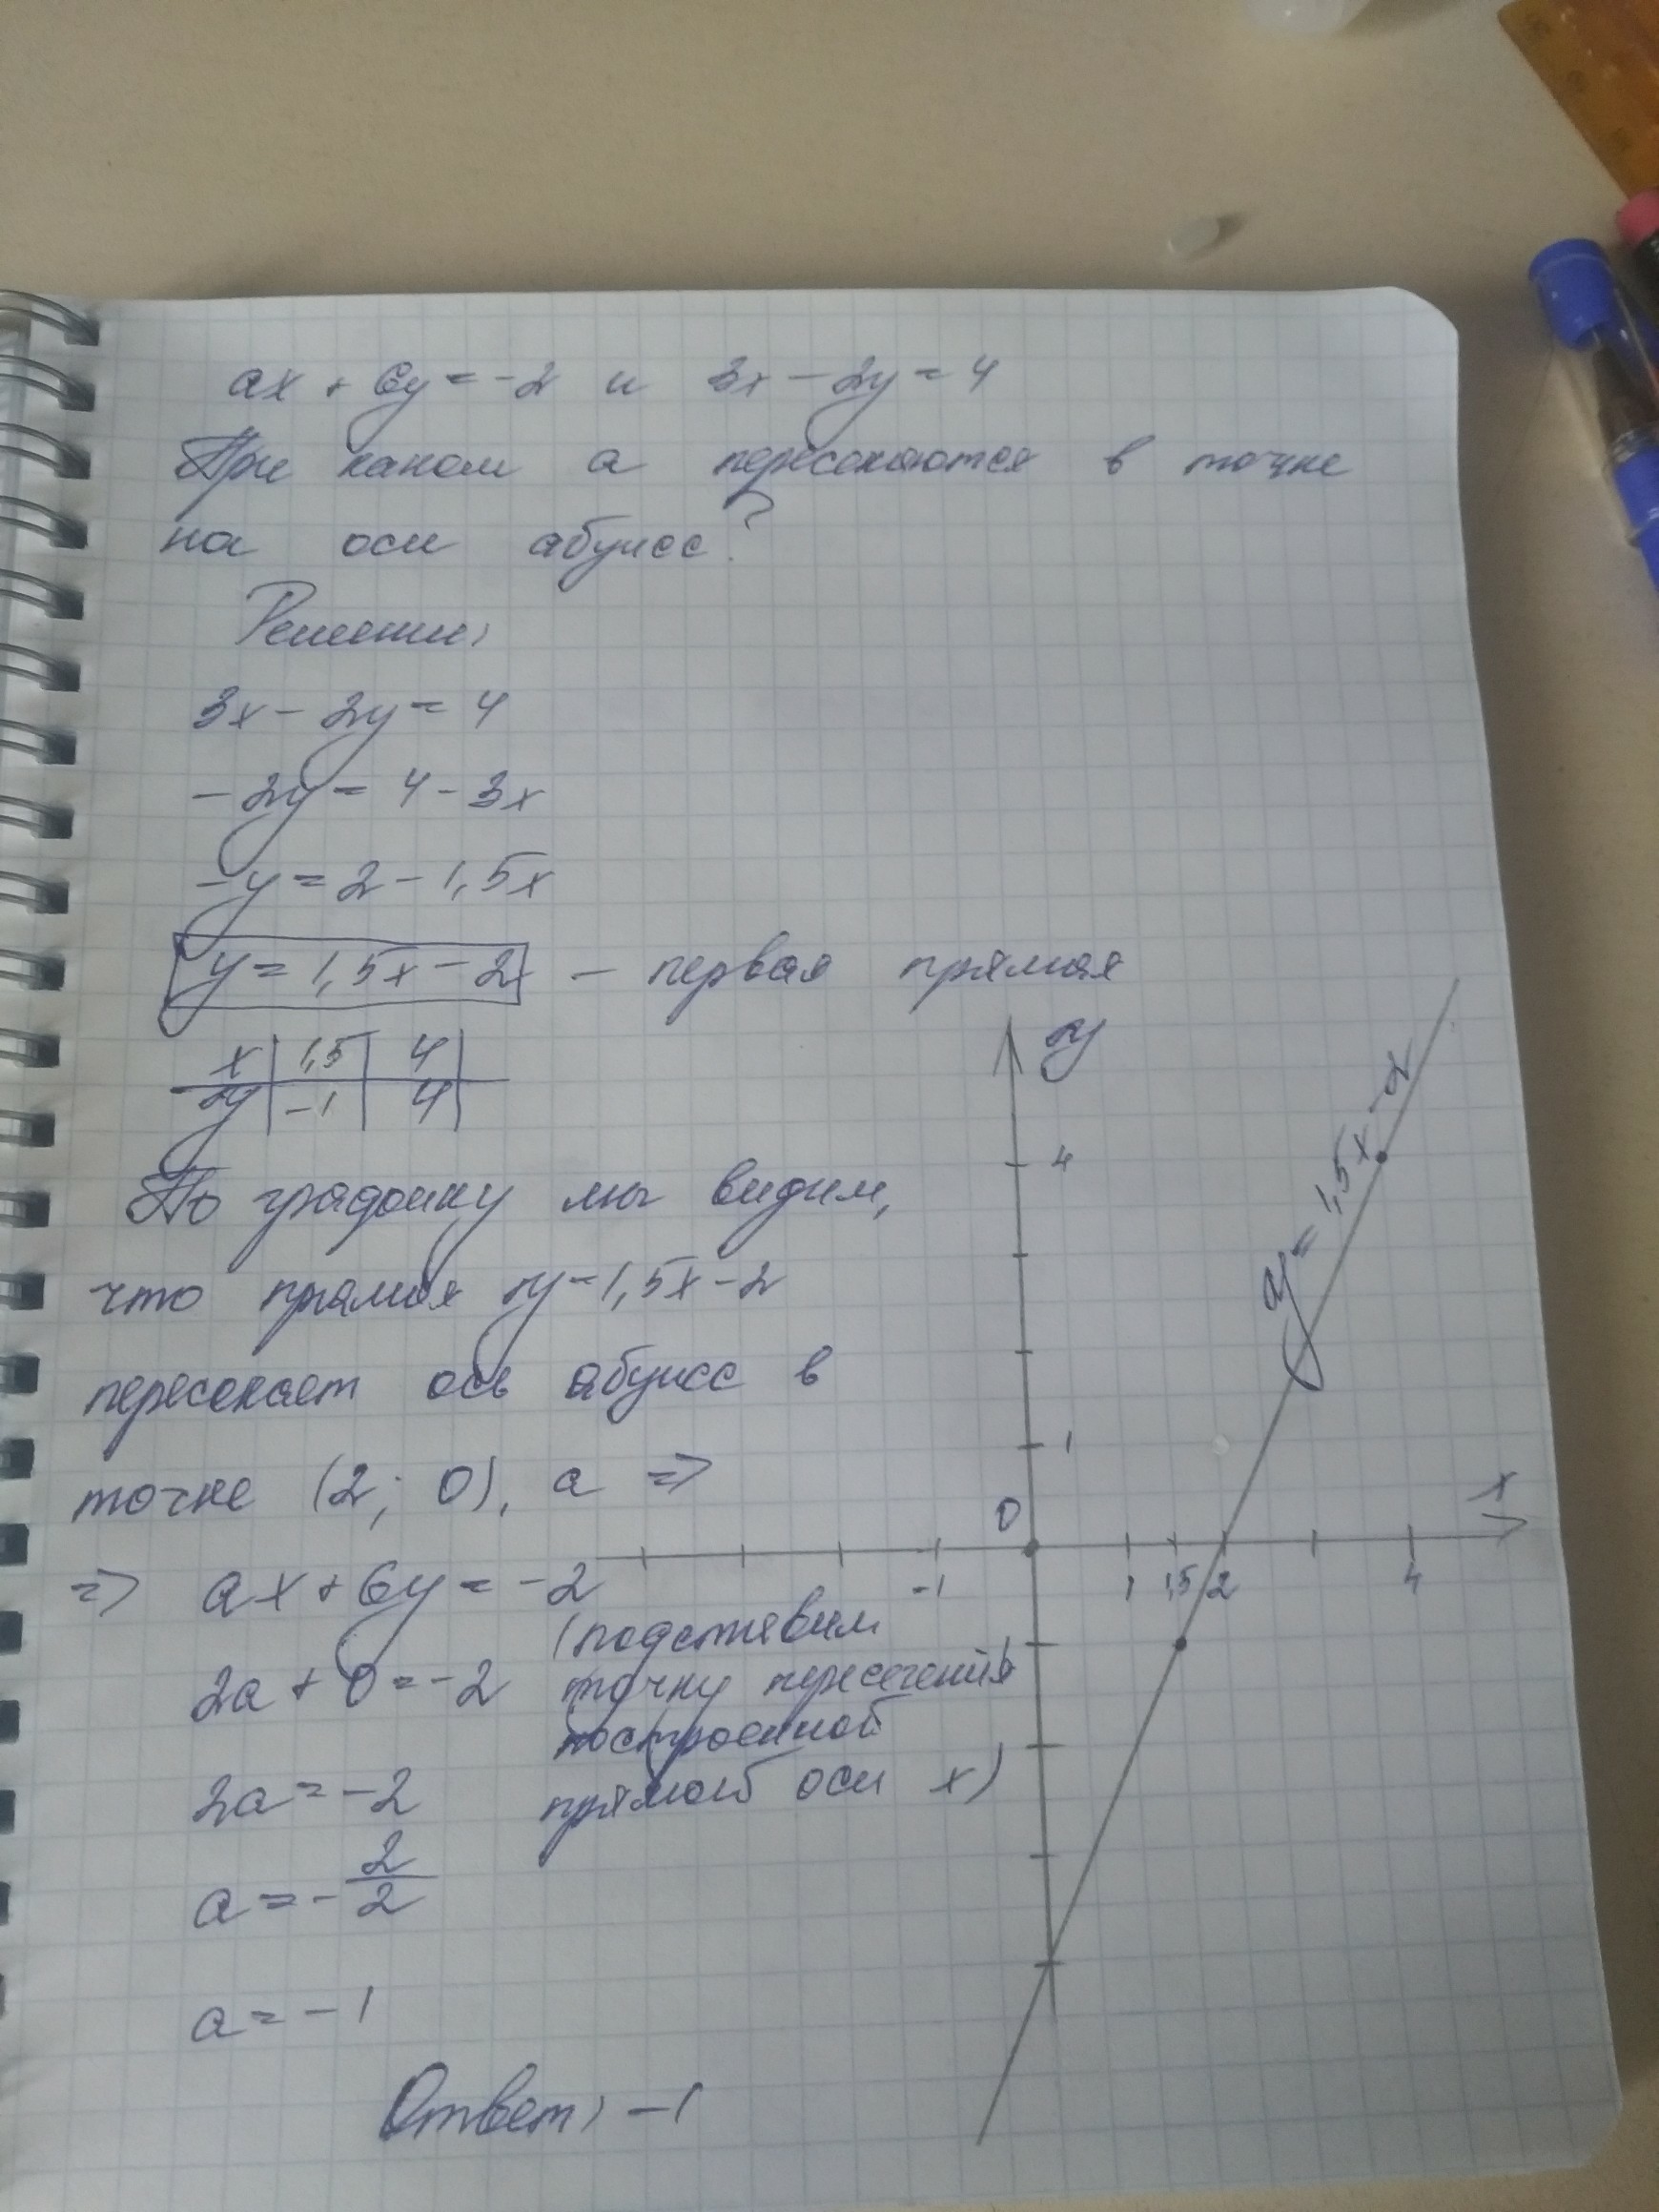 ax + 6y = -2 и 3x - 2y = 4
При каком а пересекаются в точке
на оси абцисс?
Решение:
3x - 2y = 4
-2y = 4 - 3x
-y = 2 - 1,5x
y = 1,5x - 2 - первая прямая
x 1,5 4
y -1 4
По графику мы видим,
что прямая y = 1,5x - 2
пересекает ось абцисс в
точке (2; 0), а =>
=> ax + 6y = -2
2a + 0 = -2
2a = -2
a = - 2/2
a = -1
(подставим
точку пересечения
построенной
прямой оси x)
Ответ: -1
y
4
1
0
x
-1 1 1,5 2 4
y = 1,5x - 2